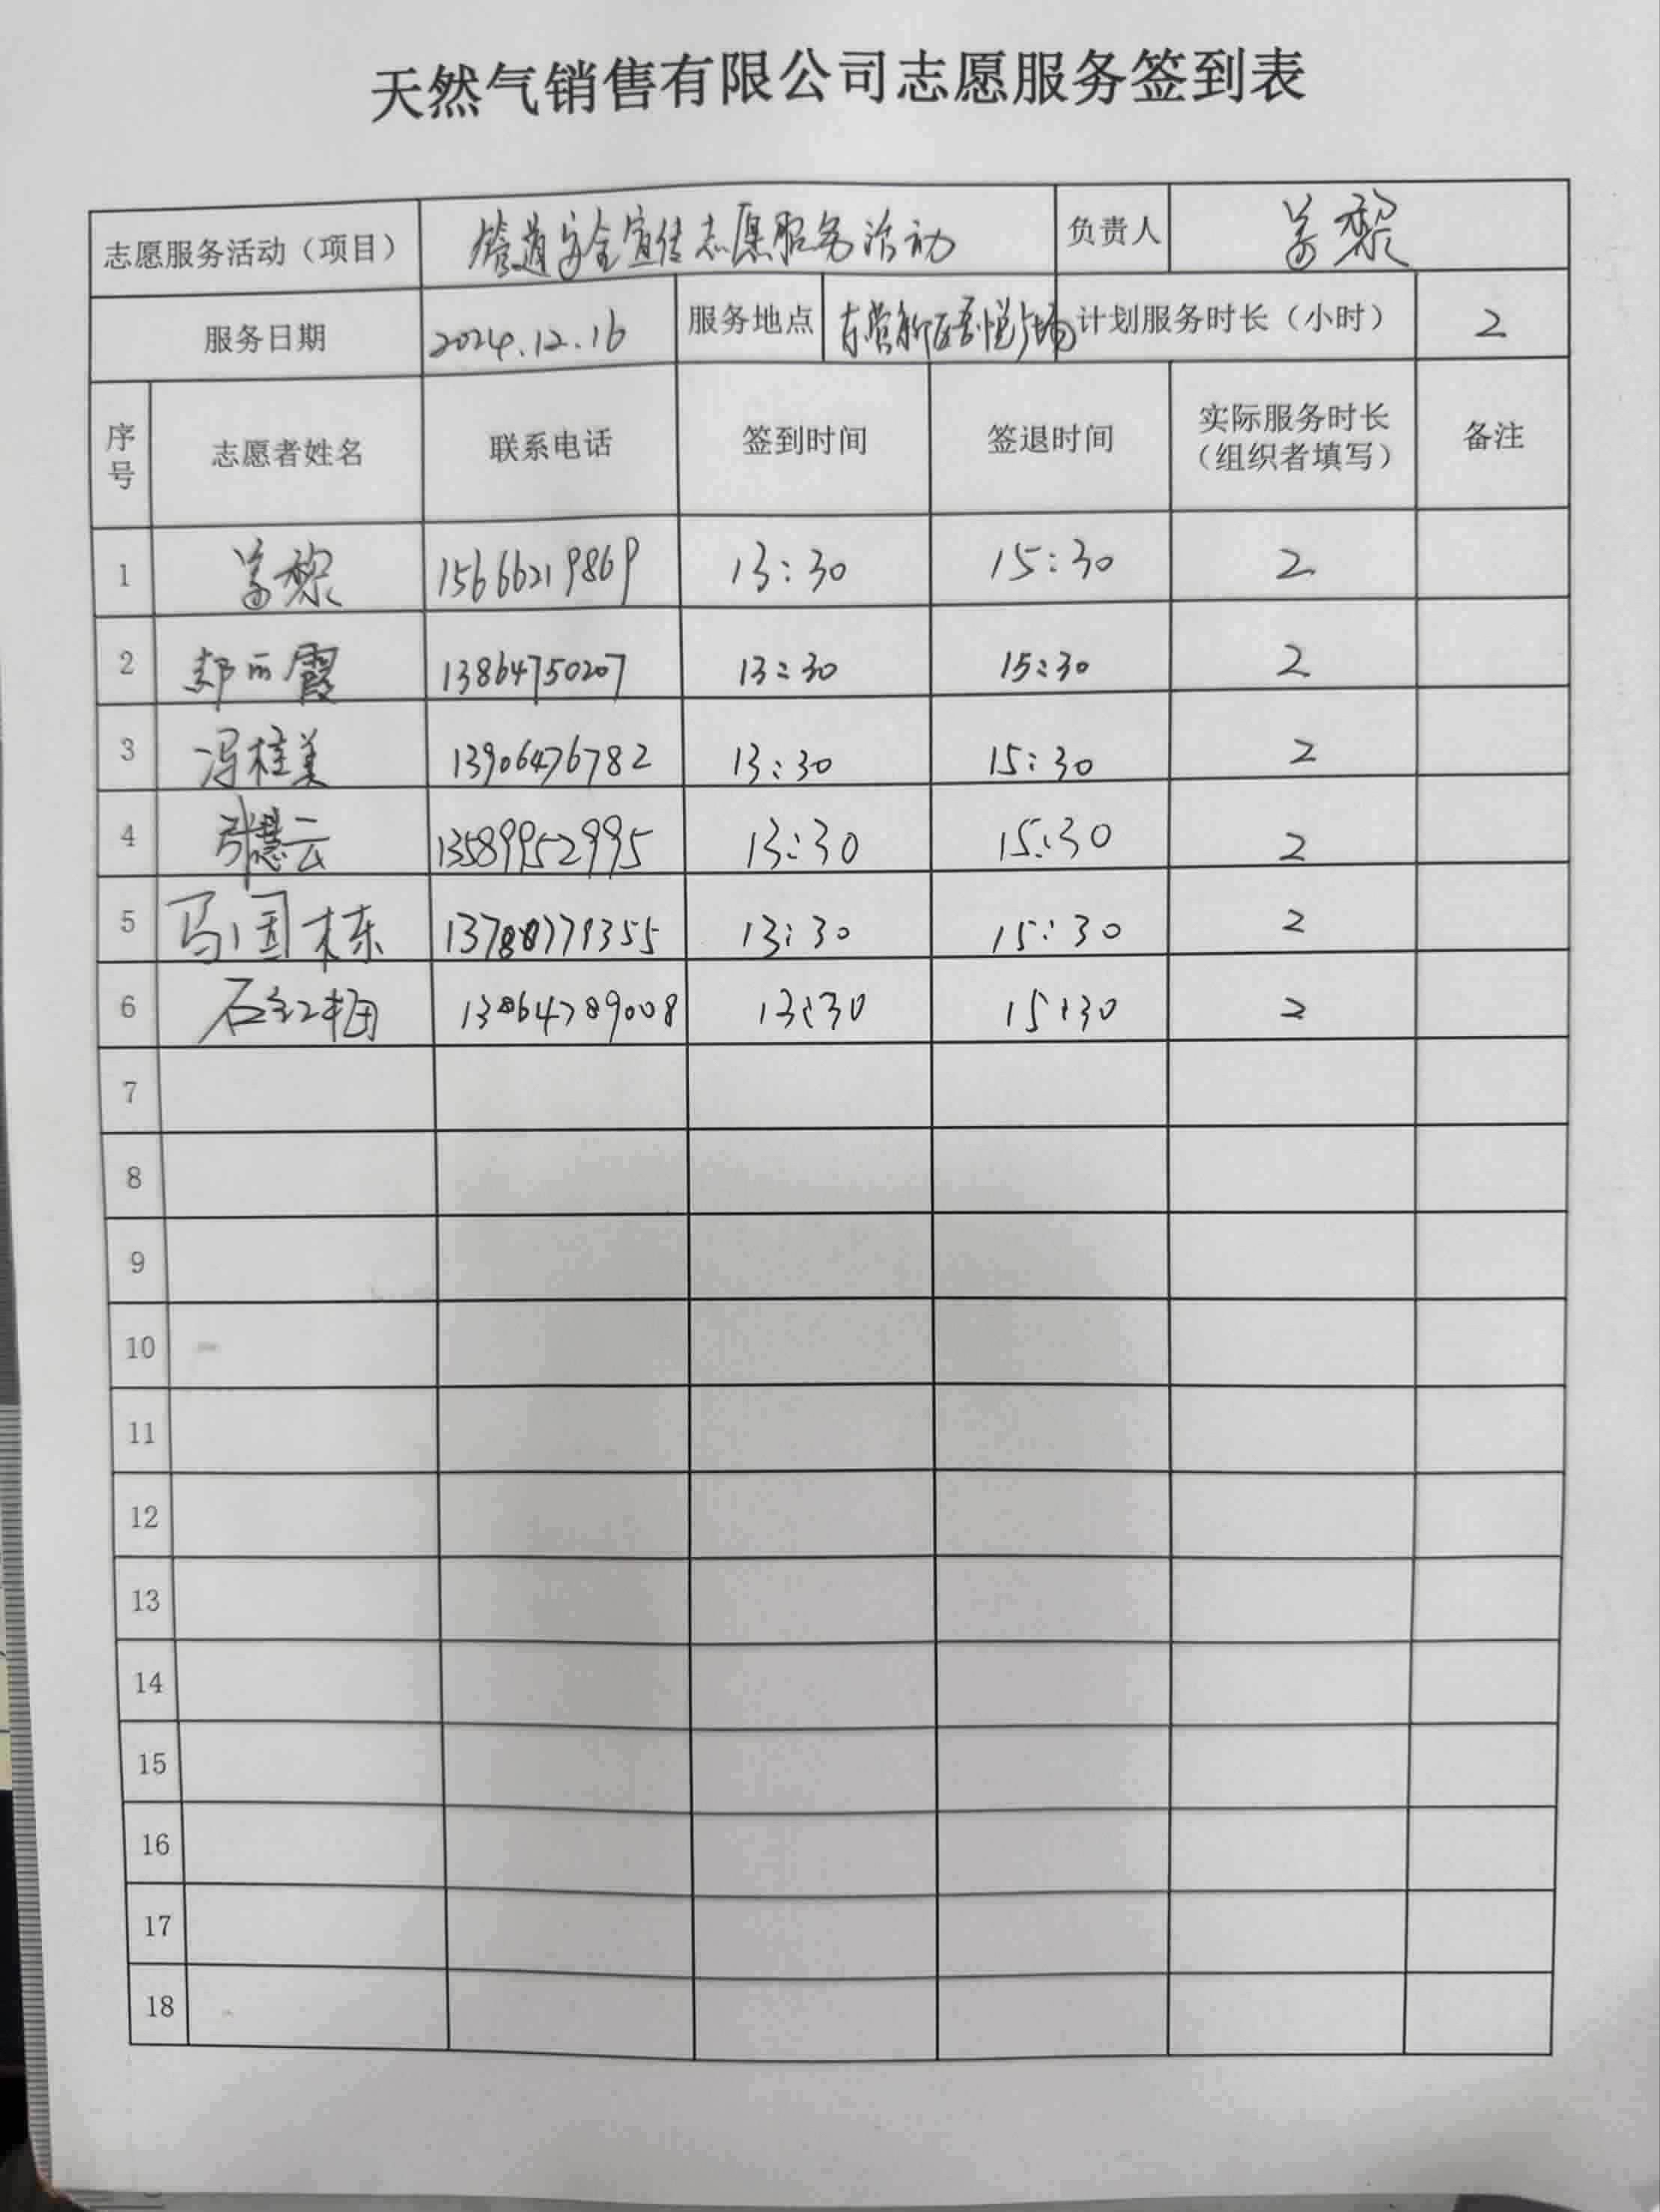 天然气销售有限公司志愿服务签到表
志愿服务活动（项目） 管道安全宣传志愿服务活动 负责人 黎
服务日期 2024.12.16 服务地点 东营新区吾悦广场 计划服务时长（小时） 2
序号 志愿者姓名 联系电话 签到时间 签退时间 实际服务时长（组织者填写） 备注
1 黎 15666219869 13:30 15:30 2
2 郑丽霞 13864750207 13:30 15:30 2
3 冯桂美 13906476782 13:30 15:30 2
4 张慧云 13589952995 13:30 15:30 2
5 马国栋 13:30 15:30 2
6 石红梅 13864789008 13:30 15:30 2
7
8
9
10
11
12
13
14
15
16
17
18